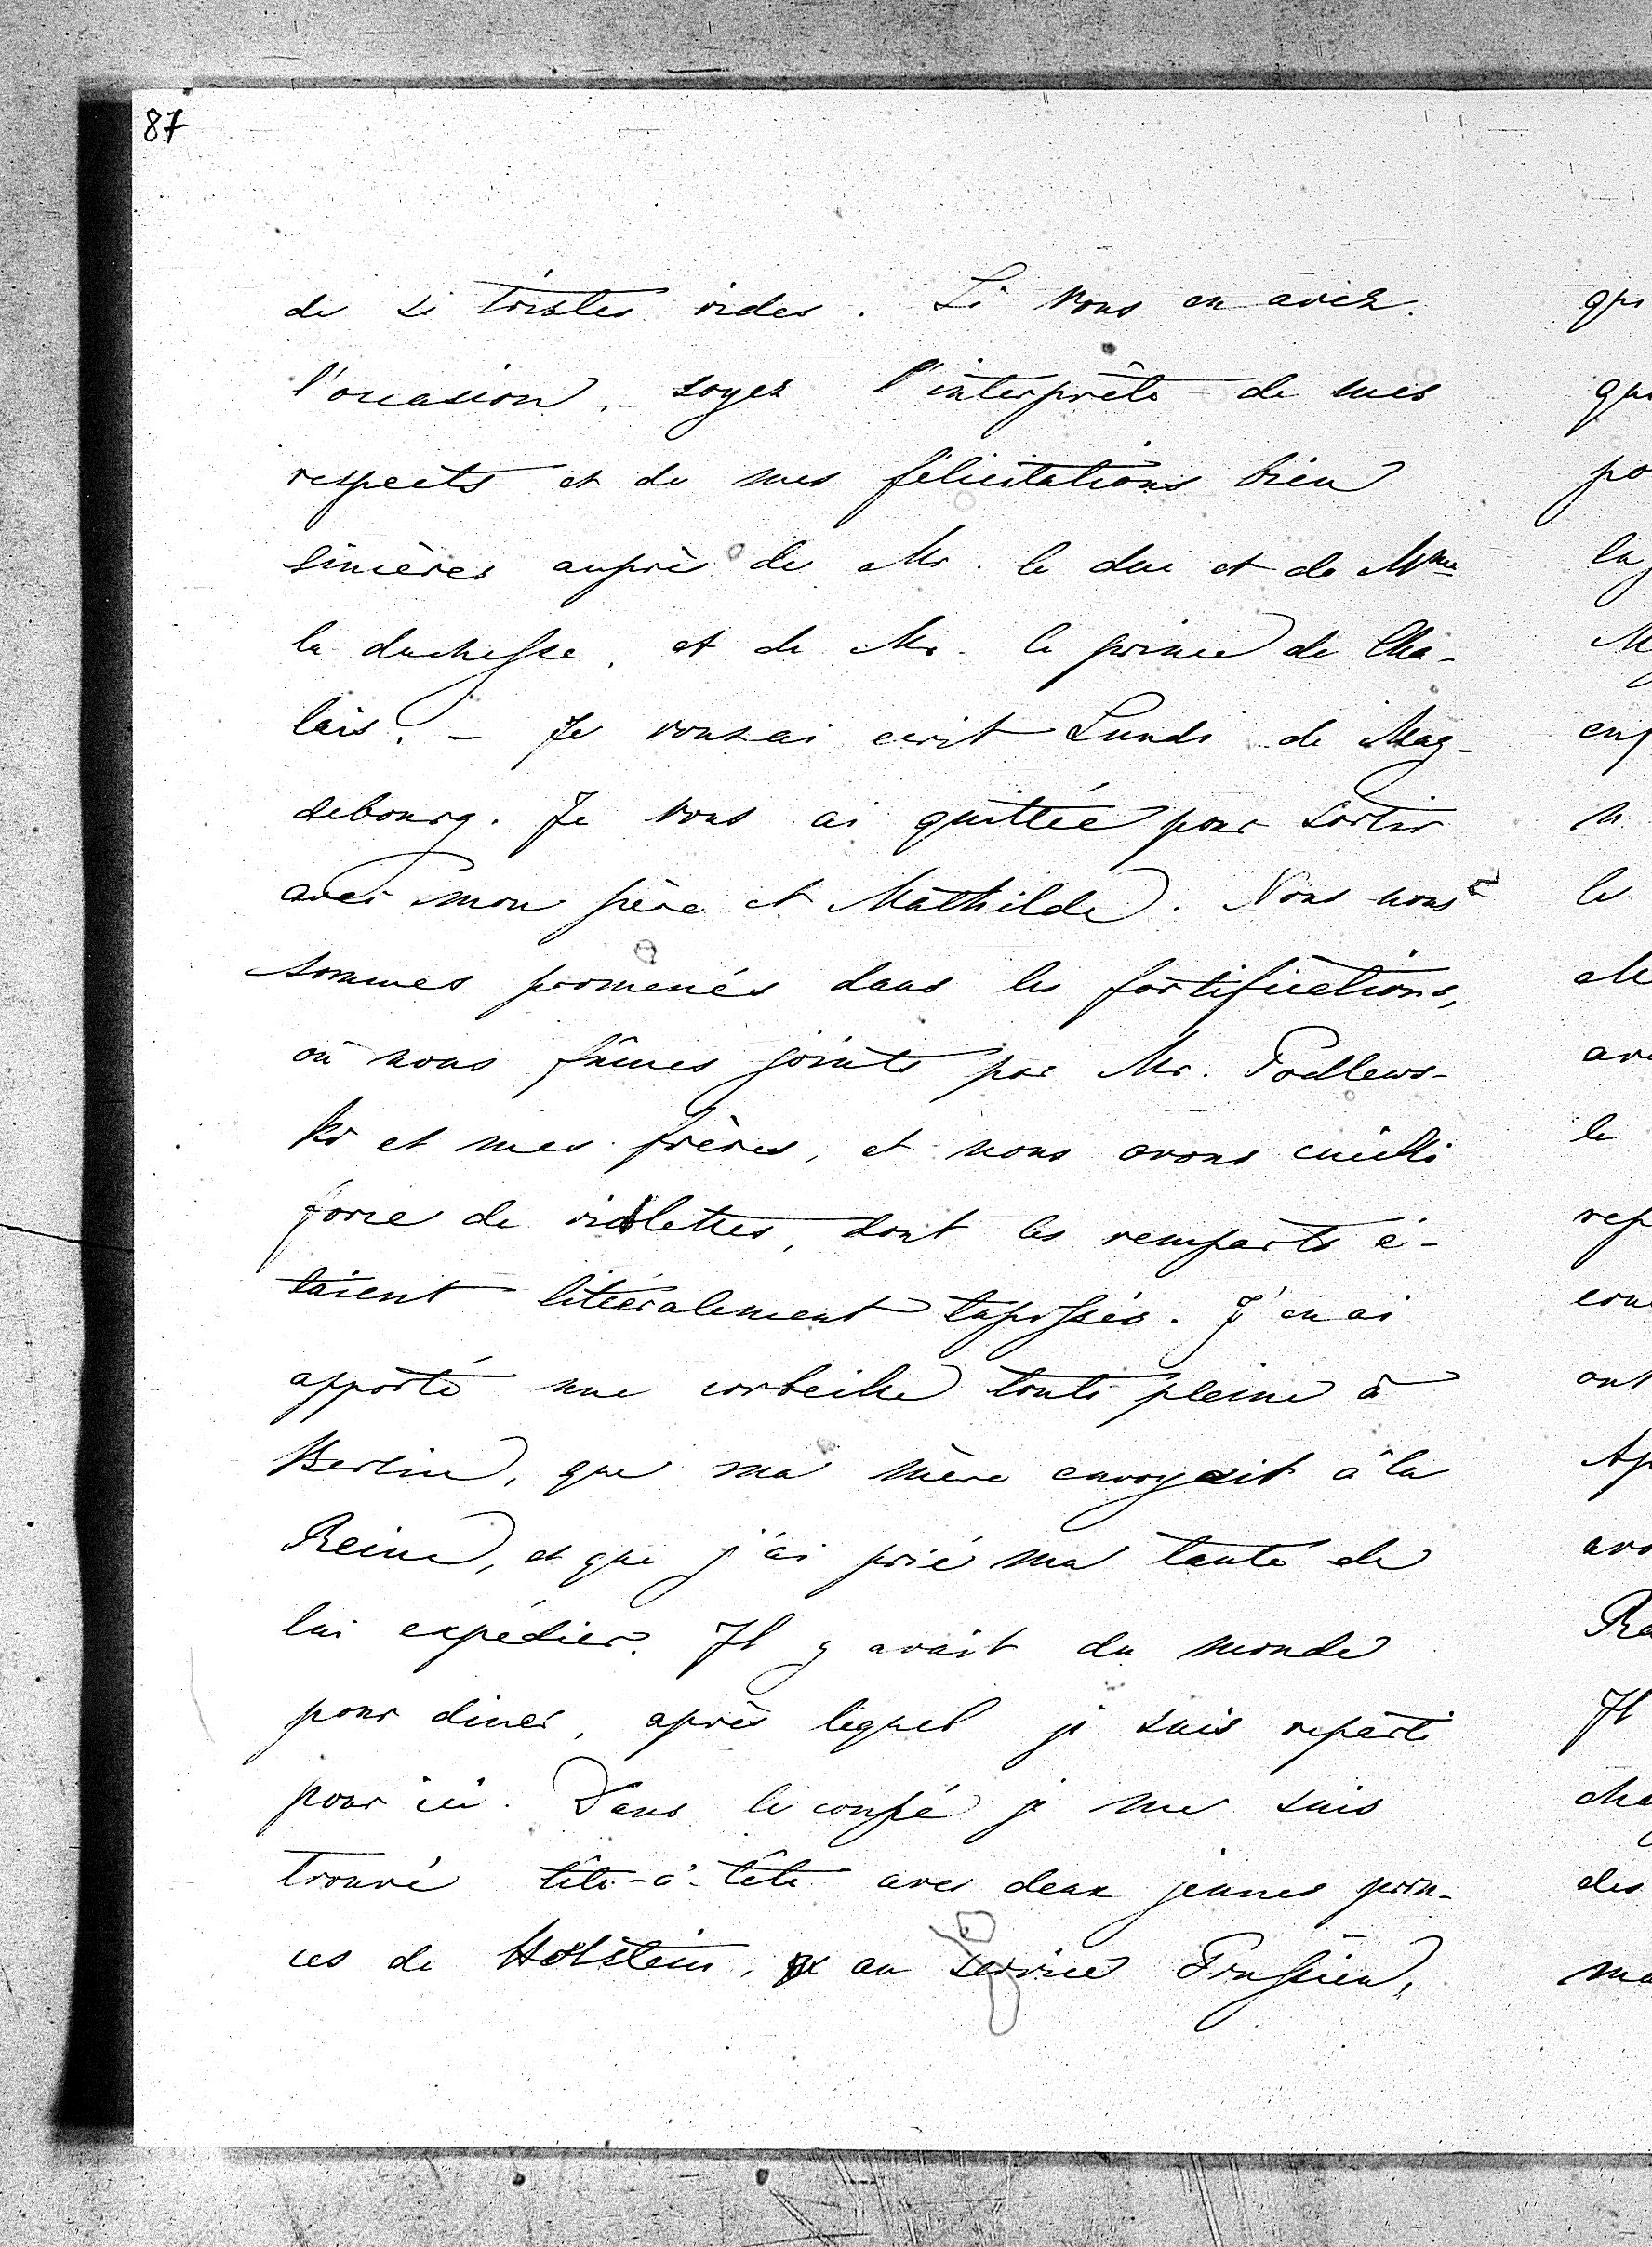 87
de si tristes vides. Si vous en avez
l'occasion, - soyez l'interprête de mes
respects et de mes félicitations bien
sincères auprès de Mr. le duc et de Mme
la duchesse, et de Mr. le prince de Cha-
lais. - Je vous ai ecrit Lundi de Mag-
debourg. Je vous ai quittée pour sortir
avec mon père et Mathilde. Nous nous
sommes promenés dans les fortifications,
où nous fûmes joints par Mr. Podlews-
ki et mes frères, et nous avons cueilli
force de violettes, dont les remparts é-
taient litéralement tapissés. J'en ai
apporté une corbeille toute pleine à
Berlin, que ma mère envoyait à la
Reine, et que j'ai prié ma tante de
lui expédier. Il y avait du monde
pour diner, après lequel je suis reparti
pour ici. Dans le coupé je me suis
trouvé tête-à-tête avec deux jeunes prin-
ces de Holstein, au service Prussien,